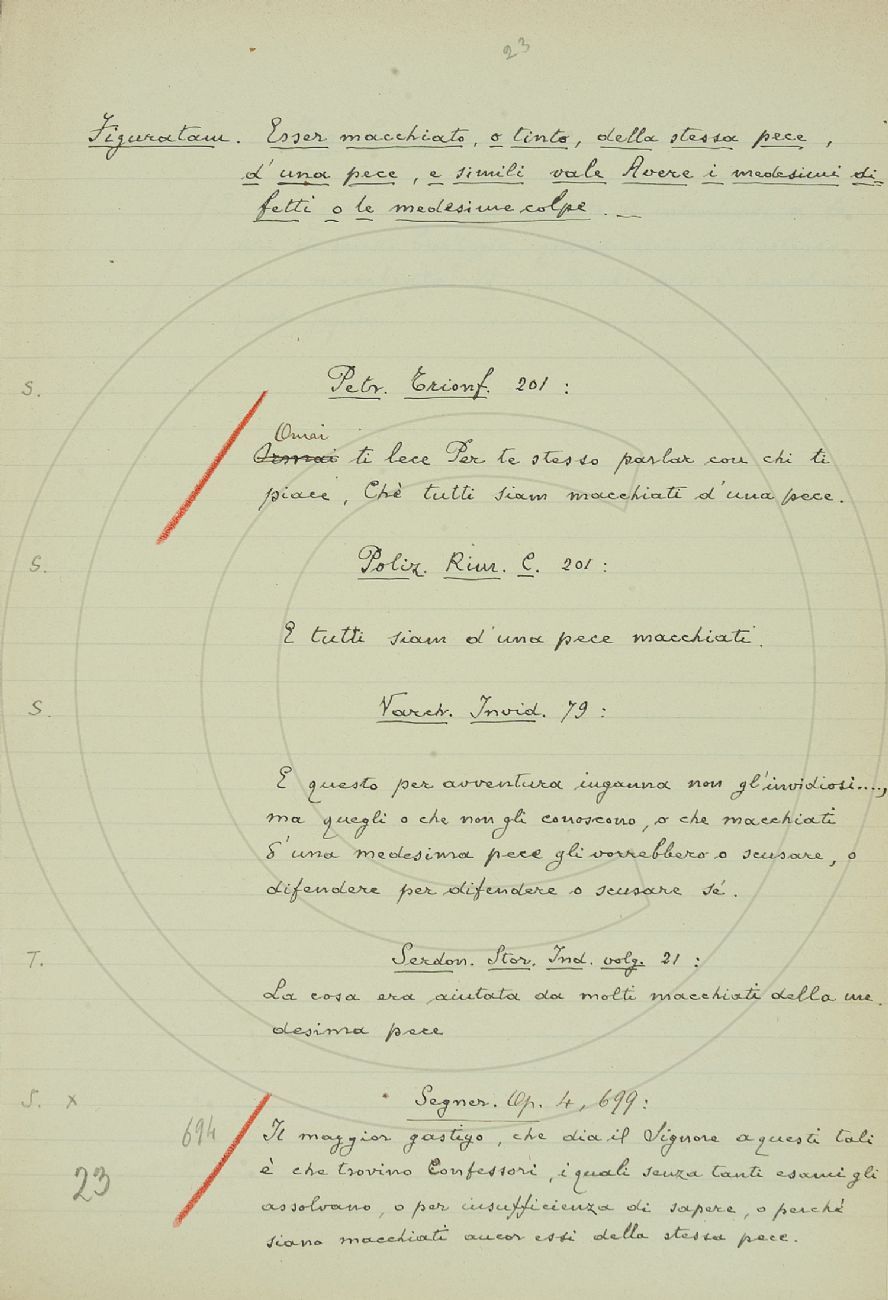 23
Figuratam. Esser macchiato, o tinto, della stessa pece,
d'una pece, e simili vale Avere i medesimi di-
fetti o le medesime colpe. —
S. Petr. Trionf. 201:
Omai
Ormai ti lece Per te stesso parlar con chi ti
piace, Chè tutti siam macchiati d'una pece.
S. Poliz. Rim. C. 201:
E tutti siam d'una pece macchiati.
S. Varch. Invid. 79:
E questo per avventura inganna non gl'invidiosi....,
ma quegli o che non gli conoscono, o che macchiati
d'una medesima pece gli vorrebbero o scusare, o
difendere per difendere o scusare sé.
T. Serdon. Stor. Ind. volg. 21:
La cosa era aiutata da molti macchiati della me-
desima pece
S. x Segner. Op. 4, 699:
694 Il maggior gastigo, che dia il Signore a questi tali
23 è che trovino Confessori, i quali senza tanti esami gli
assolvano, o per insufficienza di sapere, o perché
siano macchiati ancor essi della stessa pece.